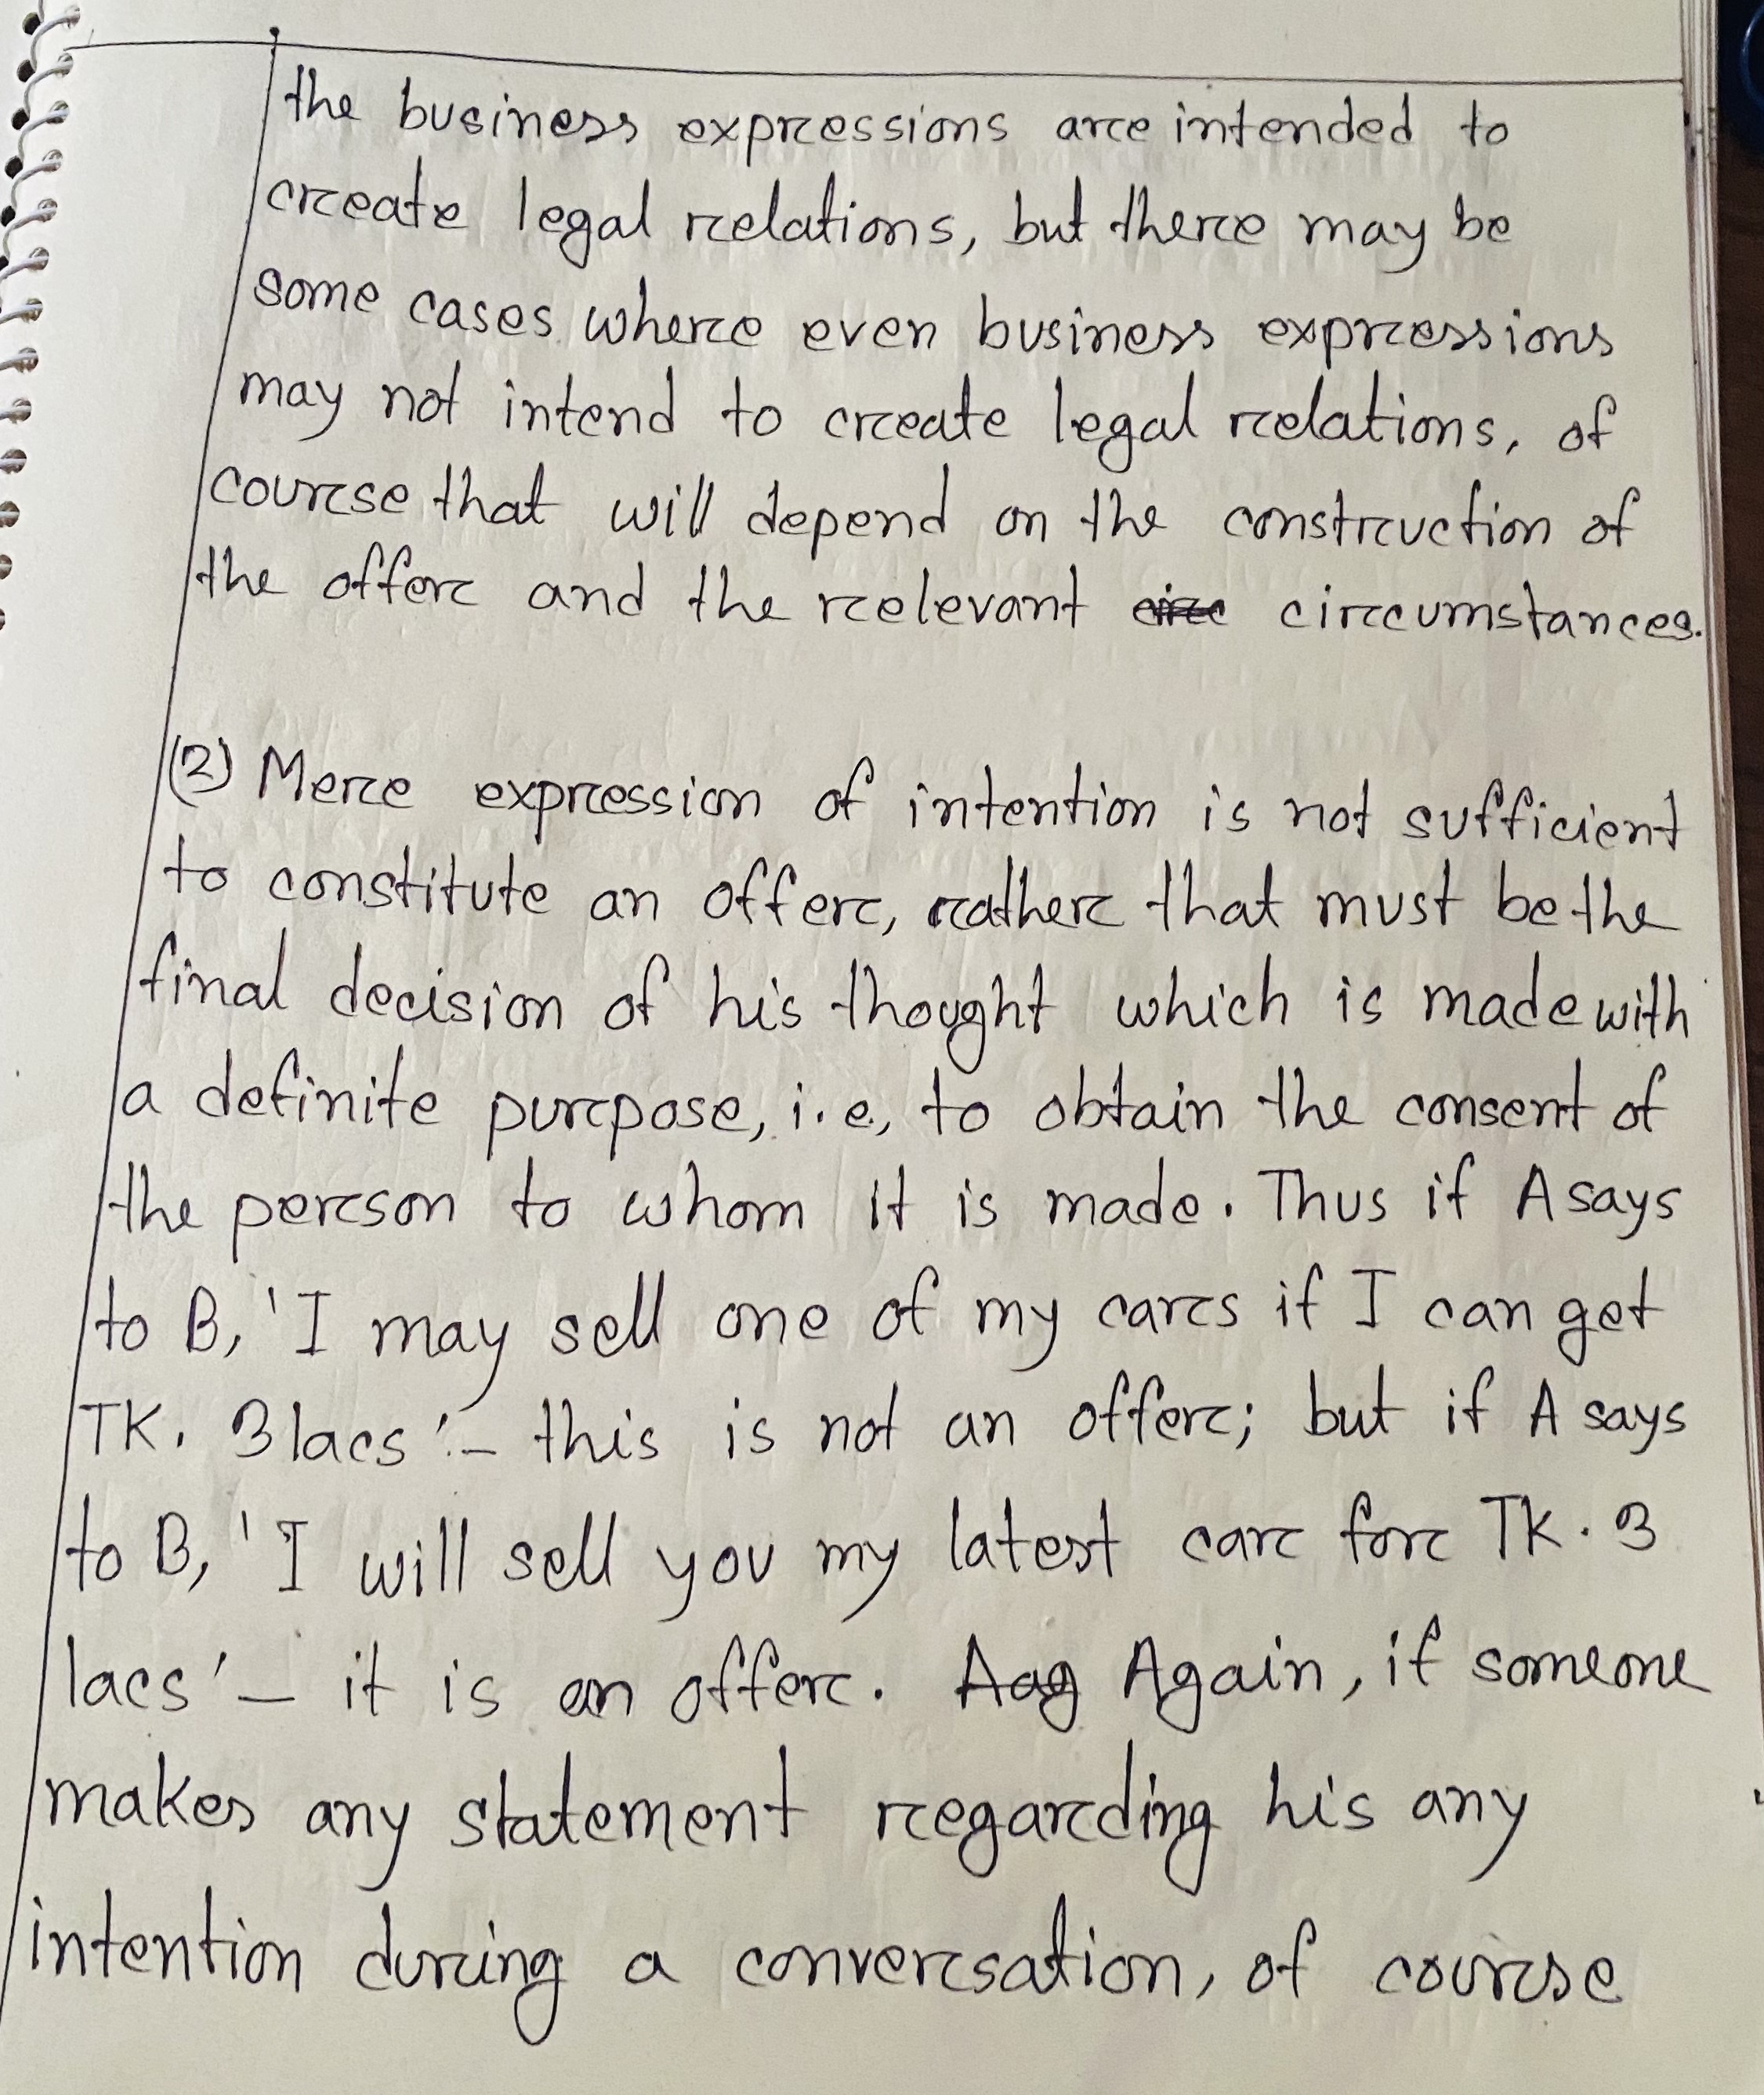 the business expressions are intended to
create legal relations, but there may be
some cases where even business expressions
may not intend to create legal relations, of
course that will depend on the construction of
the offer and the relevant circ circumstances.
(2) Mere expression of intention is not sufficient
to constitute an offer, rather that must be the
final decision of his thought which is made with
a definite purpose, i.e, to obtain the consent of
the person to whom it is made. Thus if A says
to B, 'I may sell one of my cars if I can get
TK. 3 lacs'- this is not an offer; but if A says
to B, 'I will sell you my latest car for TK. 3
lacs'- it is an offer. Aag Again, if someone
makes any statement regarding his any
intention during a conversation, of course